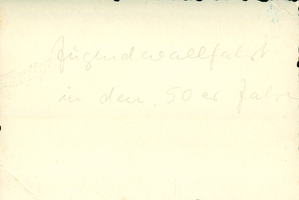 Jugendwallfahrt
in den 50er Jahre